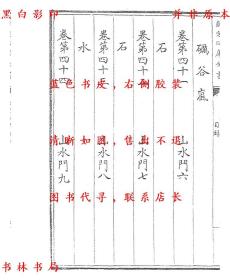 黑白影印 并非原本
蓝色书皮，右侧胶装
清晰如图，售出不退
图书代寻，联系店长
书林书局
目錄
磯 谷
卷第四十一 山水門六
石
卷第四十二 山水門七
石
卷第四十三 山水門八
水
卷第四十四 山水門九